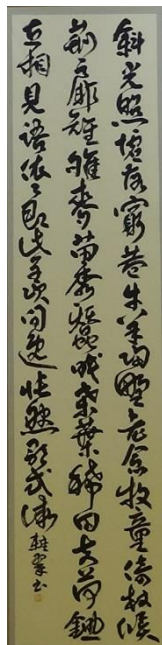 斜光照墟落窮巷牛羊歸野老念牧童倚杖候
荊扉雉雊麥苗秀蠶眠桑葉稀田夫荷鋤
至相見語依々即此羨閒逸悵然歌式微 書